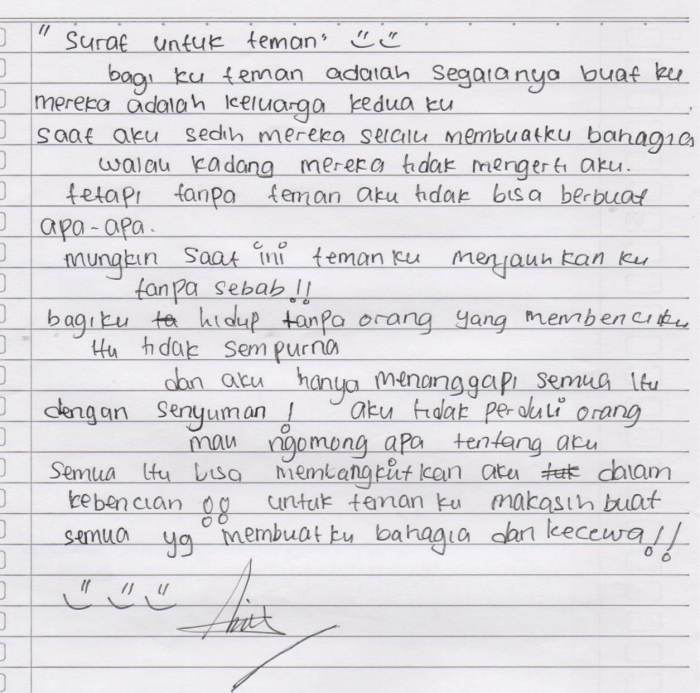 " Surat untuk teman"
bagi ku teman adalah segalanya buat ku
mereka adalah keluarga kedua ku
saat aku sedih mereka selalu membuatku bahagia
walau kadang mereka tidak mengerti aku.
tetapi tanpa teman aku tidak bisa berbuat
apa-apa.
mungkin saat ini teman ku menjauhkan ku
tanpa sebab!!
bagiku ta hidup tanpa orang yang membenciku
itu tidak sempurna
dan aku hanya menanggapi semua itu
dengan senyuman! aku tidak perduli orang
mau ngomong apa tentang aku
semua itu bisa membangkitkan aku dalam
kebencian !! untuk teman ku makasih buat
semua yg membuatku bahagia dan kecewa!!